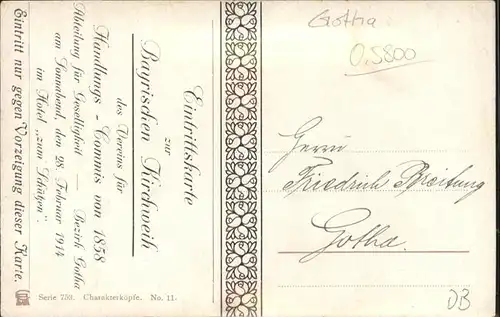 Eintrittskarte
zur
Bayrischen Kirchweih
des Vereins für
Handlungs-Commis von 1858
Abteilung für Geselligkeit — Bezirk Gotha
am Sonnabend, den 28. Februar 1914
im Hotel „zum Schützen".
Eintritt nur gegen Vorzeigung dieser Karte.
Serie 750. Charakterköpfe. No. 11.
Gotha
0,5800
Herrn
Friedrich Breitung
Gotha.
DB